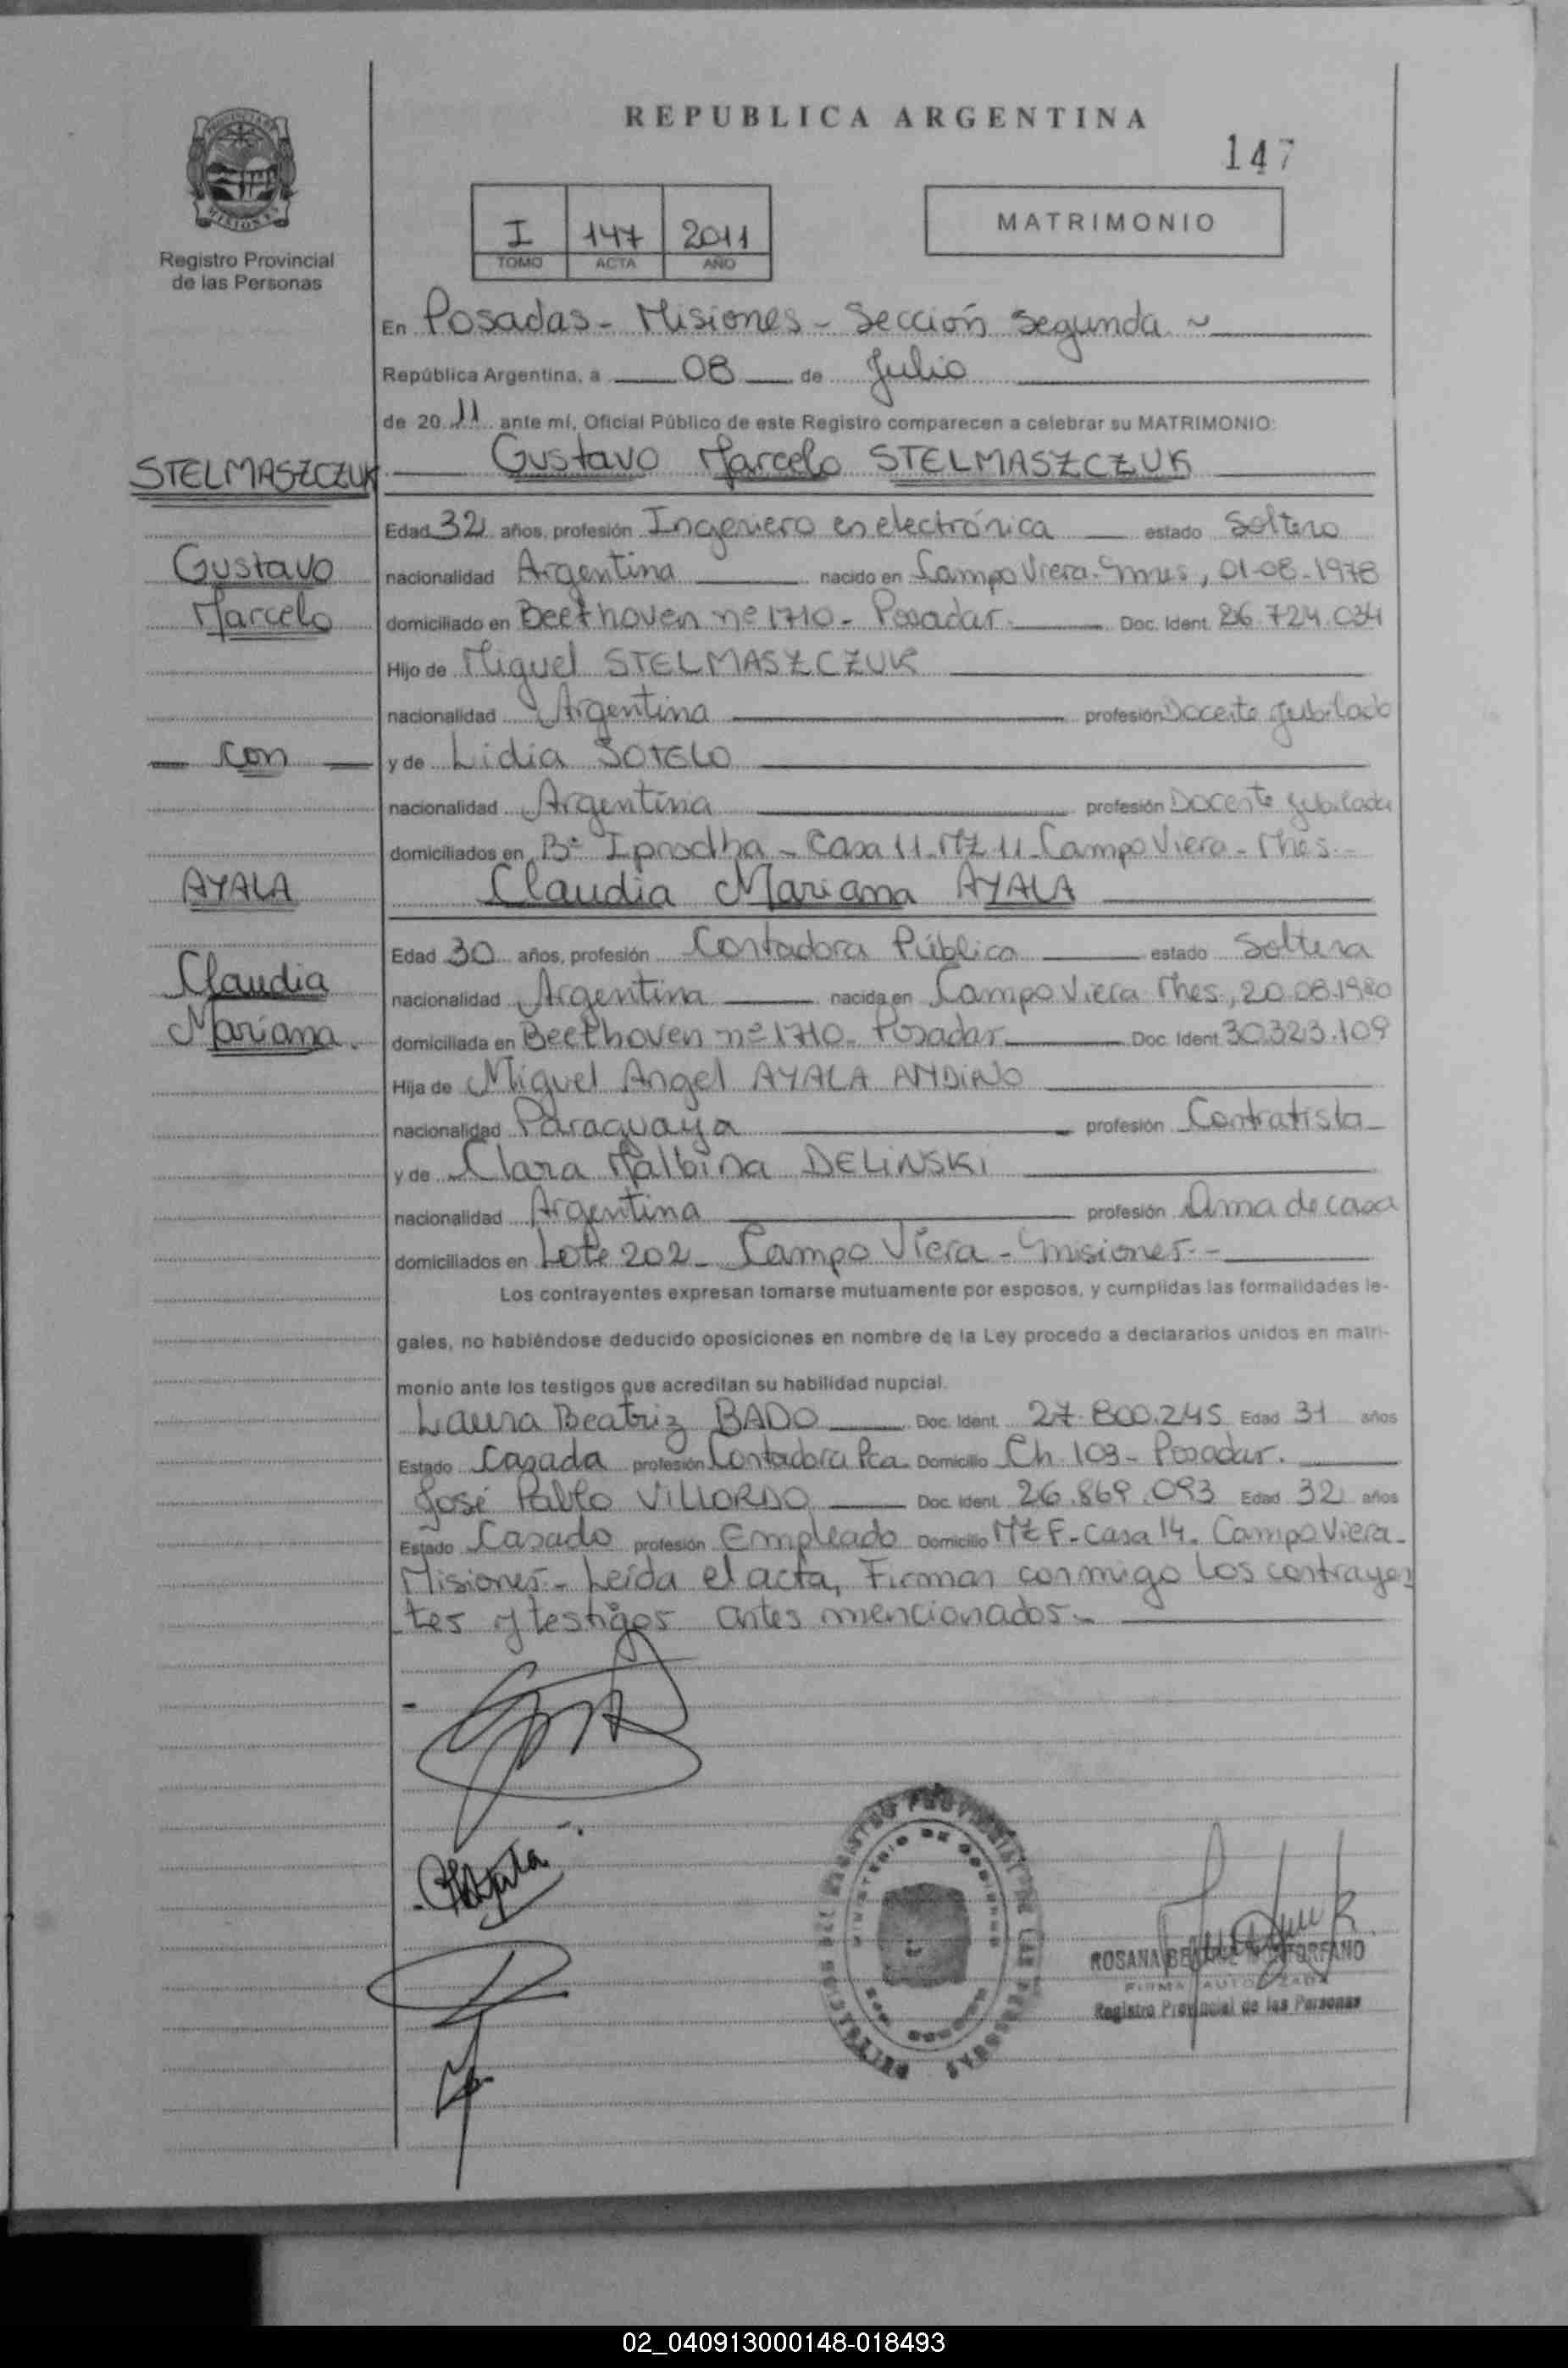 REPUBLICA ARGENTINA
147
I 147 2011
TOMO ACTA AÑO
MATRIMONIO
PROVINCIA DE
MISIONES
Registro Provincial
de las Personas
En Posadas - Misiones - Sección Segunda ~
República Argentina, a 08 de Julio
de 20 11 ante mí, Oficial Público de este Registro comparecen a celebrar su MATRIMONIO:
STELMASZCZUK Gustavo Marcelo STELMASZCZUK
Edad 32 años, profesión Ingeniero en electrónica estado Soltero
Gustavo nacionalidad Argentina nacido en Campo Viera - Mnes, 01-08-1978
Marcelo domiciliado en Beethoven nº 1710 - Posadas Doc. Ident. 26.724.034
Hijo de Miguel STELMASZCZUK
nacionalidad Argentina profesión Docente Jubilado
con y de Lidia SOTELO
nacionalidad Argentina profesión Docente Jubilada
domiciliados en Bº Iprodha - Casa 11 - MZ 11 - Campo Viera - Mnes -
AYALA Claudia Mariana AYALA
Edad 30 años, profesión Contadora Pública estado Soltera
Claudia nacionalidad Argentina nacida en Campo Viera Mnes, 20.08.1980
Mariana. domiciliada en Beethoven nº 1710 - Posadas Doc. Ident 30.323.109
Hija de Miguel Angel AYALA ANDINO
nacionalidad Paraguaya profesión Contratista
y de Clara Malbina DELINSKI
nacionalidad Argentina profesión Ama de casa
domiciliados en Lote 202 - Campo Viera - Misiones -
Los contrayentes expresan tomarse mutuamente por esposos, y cumplidas las formalidades le-
gales, no habiéndose deducido oposiciones en nombre de la Ley procedo a declararlos unidos en matri-
monio ante los testigos que acreditan su habilidad nupcial.
Laura Beatriz BADO Doc. Ident. 27.800.245 Edad 31 años
Estado Casada profesión Contadora Pca. Domicilio Ch. 103 - Posadas.
José Pablo VILLORDO Doc. Ident. 26.869.093 Edad 32 años
Estado Casado profesión Empleado Domicilio MZ F - Casa 14 - Campo Viera -
Misiones - Leída el acta, Firman conmigo los contrayen
tes y testigos antes mencionados -
REGISTRO PROVINCIAL DE LAS PERSONAS
MINISTERIO DE GOBIERNO
ROSANA
FIRMA AUTORIZADA
Registro Provincial de las Personas
02_040913000148-018493